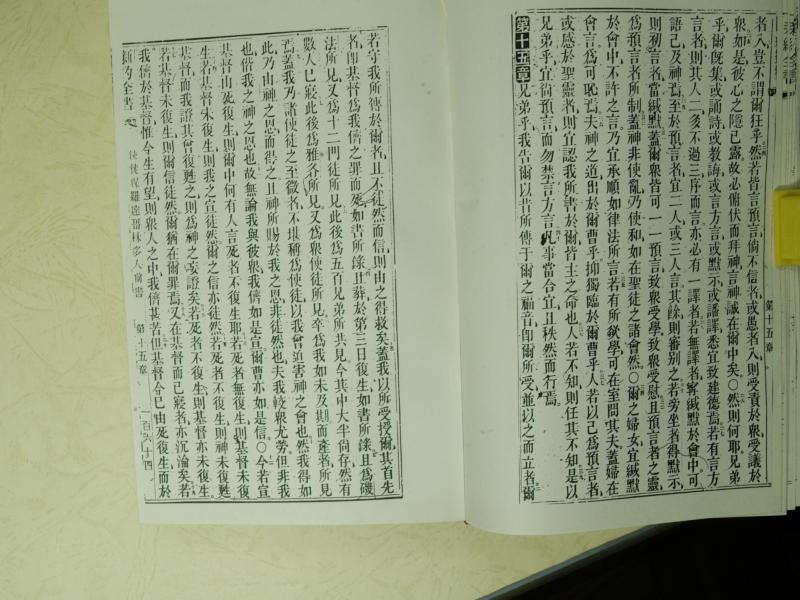 者入豈不謂爾狂乎然若皆言預言倘不信者或愚者入則受責於衆受議於
衆如是彼心之隱已露故必俯伏而拜神言神誠在爾中矣〇然則何耶兄弟
乎爾旣集或誦詩或教誨或言方言或默示或譒譯悉宜致建德焉若有言方
言者則其人二多不過三序而言亦必有一譯者若無譯者寧緘默於會中可
語己及神焉至於預言者宜二人或三人言其餘則審別之若旁坐者得默示
則初言者當緘默蓋爾衆皆可一一預言致衆受學致衆受慰且預言者之靈
爲預言者所制蓋神非使亂乃使和如在聖徒之諸會然〇爾之婦女宜緘默
於會中不許之言乃宜承順如律法所言若有所欲學可在室問其夫蓋婦在
會言爲可恥焉夫神之道出於爾曹乎抑獨臨於爾曹乎人若以己爲預言者
或感於聖靈者則宜認我所書於爾皆主之命也人若不知則任其不知是以
兄弟乎宜尙預言而勿禁言方言凡事當合宜且秩然而行焉
第十五章 兄弟乎我告爾以昔所傳于爾之福音卽爾所受並以之而立者爾
第十五章
若守我所傳於爾者且不徒然而信則由之得救矣蓋我以所受授爾其首先
者卽基督爲我儕之罪而死如書所錄且葬於第三日復生如書所錄且爲磯
法所見又爲十二門徒所見此後爲五百兄弟所共見今其中大半尙存然有
數人已寢此後爲雅各所見又爲衆使徒所見牽爲我如未及期而產者所見
焉蓋我乃諸使徒之至微者不堪稱爲使徒以我曾迫害神之會也然我得如
此乃由神之恩而得之且神所賜於我之恩非徒然也夫我較衆尤勞但非我
也偕我之神之恩也故無論我與彼衆我儕如是宣爾曹亦如是信〇今若宣
基督由死復生則爾中何有人言死者不復生耶若死者無復生則基督未復
生若基督未復生則我之宣徒然爾之信亦徒然若死者不復生則神未復甦
基督而我證其曾復甦之則爲神之妄證矣若死者不復生則基督亦未復生
若基督未復生則爾信徒然爾猶在爾罪焉又在基督而已寢者亦沉淪矣若
我儕於基督惟今生有望則衆人之中我儕甚苦但基督今已由死復生而於
新約全書 使徒保羅達哥林多人前書 第十五章 一百六十四